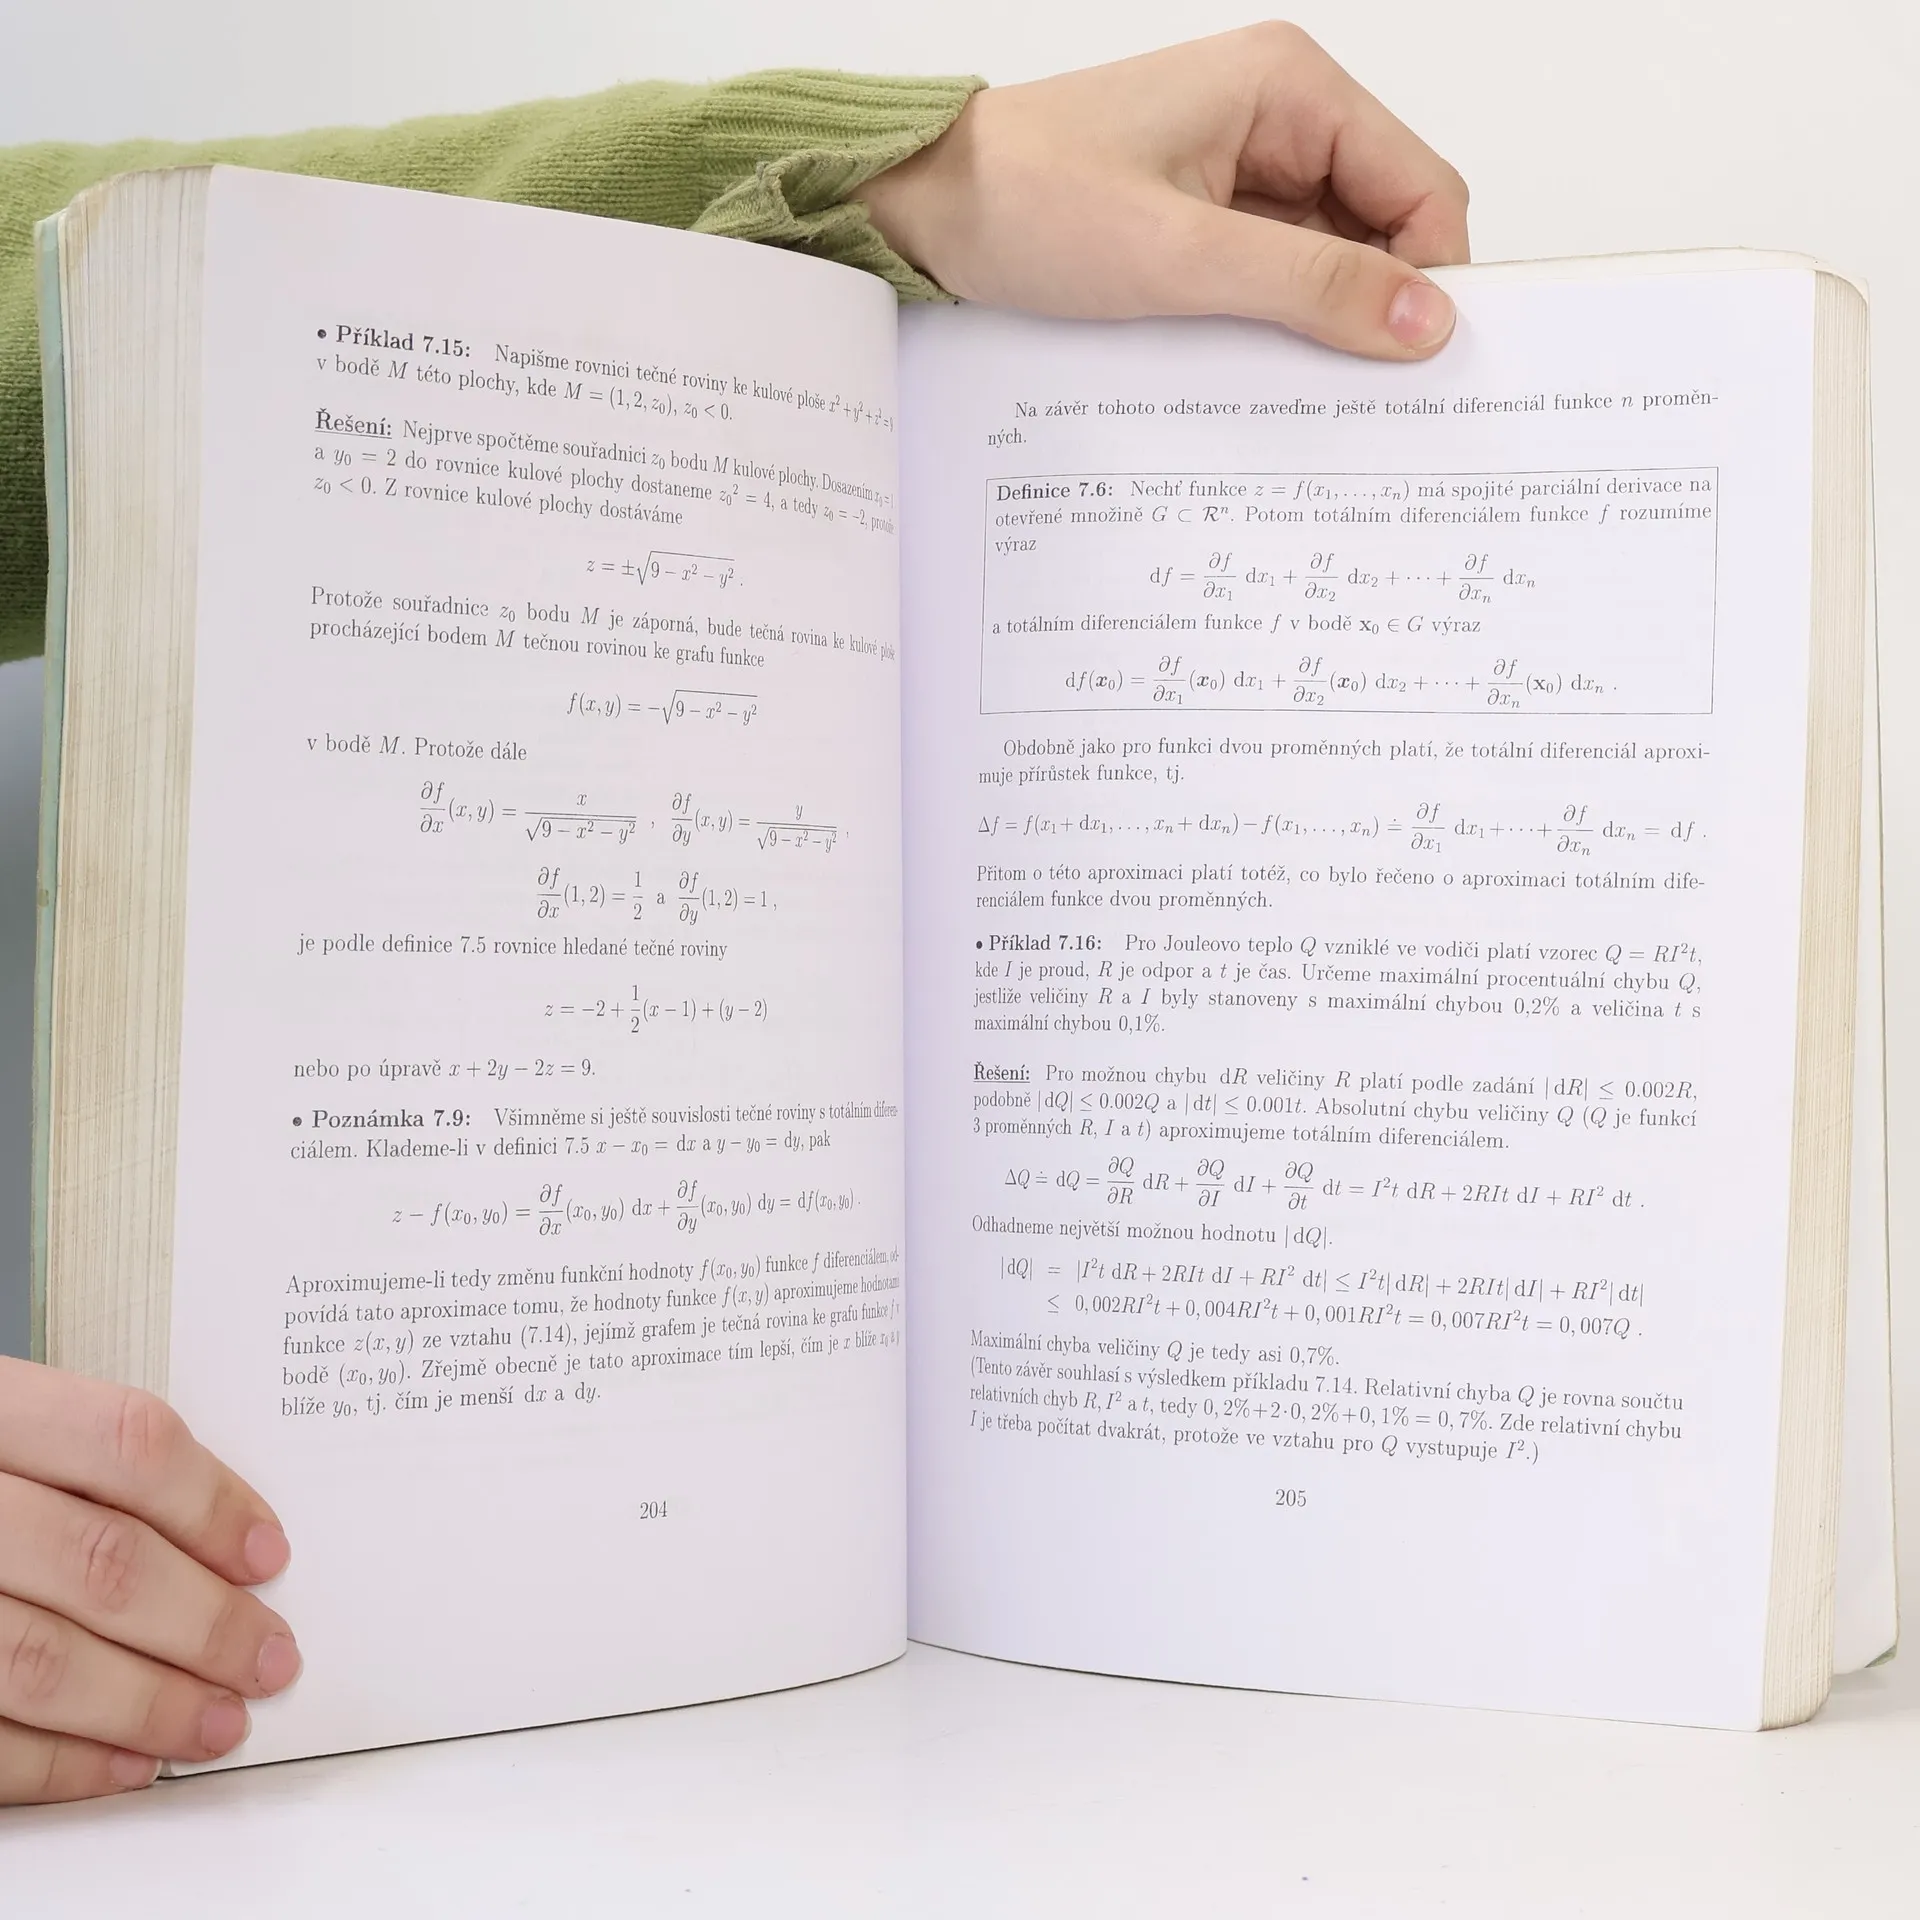 • Příklad 7.15: Napišme rovnici tečné roviny ke kulové ploše x² + y² + z² = 9
v bodě M této plochy, kde M = (1, 2, z₀), z₀ < 0.
Řešení: Nejprve spočtěme souřadnici z₀ bodu M kulové plochy. Dosazením x₀ = 1
a y₀ = 2 do rovnice kulové plochy dostaneme z₀² = 4, a tedy z₀ = −2, protože
z₀ < 0. Z rovnice kulové plochy dostáváme
z = ±√(9 − x² − y²) .
Protože souřadnice z₀ bodu M je záporná, bude tečná rovina ke kulové ploše
procházející bodem M tečnou rovinou ke grafu funkce
f(x, y) = −√(9 − x² − y²)
v bodě M. Protože dále
∂f/∂x (x, y) = x/√(9 − x² − y²) , ∂f/∂y (x, y) = y/√(9 − x² − y²) ,
∂f/∂x (1, 2) = 1/2 a ∂f/∂y (1, 2) = 1 ,
je podle definice 7.5 rovnice hledané tečné roviny
z = −2 + 1/2 (x − 1) + (y − 2)
nebo po úpravě x + 2y − 2z = 9.
• Poznámka 7.9: Všimněme si ještě souvislosti tečné roviny s totálním diferen-
ciálem. Klademe-li v definici 7.5 x − x₀ = dx a y − y₀ = dy, pak
z − f(x₀, y₀) = ∂f/∂x (x₀, y₀) dx + ∂f/∂y (x₀, y₀) dy = df(x₀, y₀) .
Aproximujeme-li tedy změnu funkční hodnoty f(x₀, y₀) funkce f diferenciálem, od-
povídá tato aproximace tomu, že hodnoty funkce f(x, y) aproximujeme hodnotami
funkce z(x, y) ze vztahu (7.14), jejímž grafem je tečná rovina ke grafu funkce f v
bodě (x₀, y₀). Zřejmě obecně je tato aproximace tím lepší, čím je x blíže x₀ a y
blíže y₀, tj. čím je menší dx a dy.
204
Na závěr tohoto odstavce zaveďme ještě totální diferenciál funkce n proměn-
ných.
Definice 7.6: Nechť funkce z = f(x₁, . . . , xₙ) má spojité parciální derivace na
otevřené množině G ⊂ Rⁿ. Potom totálním diferenciálem funkce f rozumíme
výraz
df = ∂f/∂x₁ dx₁ + ∂f/∂x₂ dx₂ + · · · + ∂f/∂xₙ dxₙ
a totálním diferenciálem funkce f v bodě x₀ ∈ G výraz
df(x₀) = ∂f/∂x₁ (x₀) dx₁ + ∂f/∂x₂ (x₀) dx₂ + · · · + ∂f/∂xₙ (x₀) dxₙ .
Obdobně jako pro funkci dvou proměnných platí, že totální diferenciál aproxi-
muje přírůstek funkce, tj.
Δf = f(x₁ + dx₁, . . . , xₙ + dxₙ) − f(x₁, . . . , xₙ) ≐ ∂f/∂x₁ dx₁ + · · · + ∂f/∂xₙ dxₙ = df .
Přitom o této aproximaci platí totéž, co bylo řečeno o aproximaci totálním dife-
renciálem funkce dvou proměnných.
• Příklad 7.16: Pro Jouleovo teplo Q vzniklé ve vodiči platí vzorec Q = RI²t,
kde I je proud, R je odpor a t je čas. Určeme maximální procentuální chybu Q,
jestliže veličiny R a I byly stanoveny s maximální chybou 0,2% a veličina t s
maximální chybou 0,1%.
Řešení: Pro možnou chybu dR veličiny R platí podle zadání | dR| ≤ 0.002R,
podobně | dQ| ≤ 0.002Q a | dt| ≤ 0.001t. Absolutní chybu veličiny Q (Q je funkcí
3 proměnných R, I a t) aproximujeme totálním diferenciálem.
ΔQ ≐ dQ = ∂Q/∂R dR + ∂Q/∂I dI + ∂Q/∂t dt = I²t dR + 2RIt dI + RI² dt .
Odhadneme největší možnou hodnotu | dQ|.
| dQ| = |I²t dR + 2RIt dI + RI² dt| ≤ I²t| dR| + 2RIt| dI| + RI²| dt|
≤ 0, 002RI²t + 0, 004RI²t + 0, 001RI²t = 0, 007RI²t = 0, 007Q .
Maximální chyba veličiny Q je tedy asi 0,7%.
(Tento závěr souhlasí s výsledkem příkladu 7.14. Relativní chyba Q je rovna součtu
relativních chyb R, I² a t, tedy 0, 2%+2·0, 2%+0, 1% = 0, 7%. Zde relativní chybu
I je třeba počítat dvakrát, protože ve vztahu pro Q vystupuje I².)
205